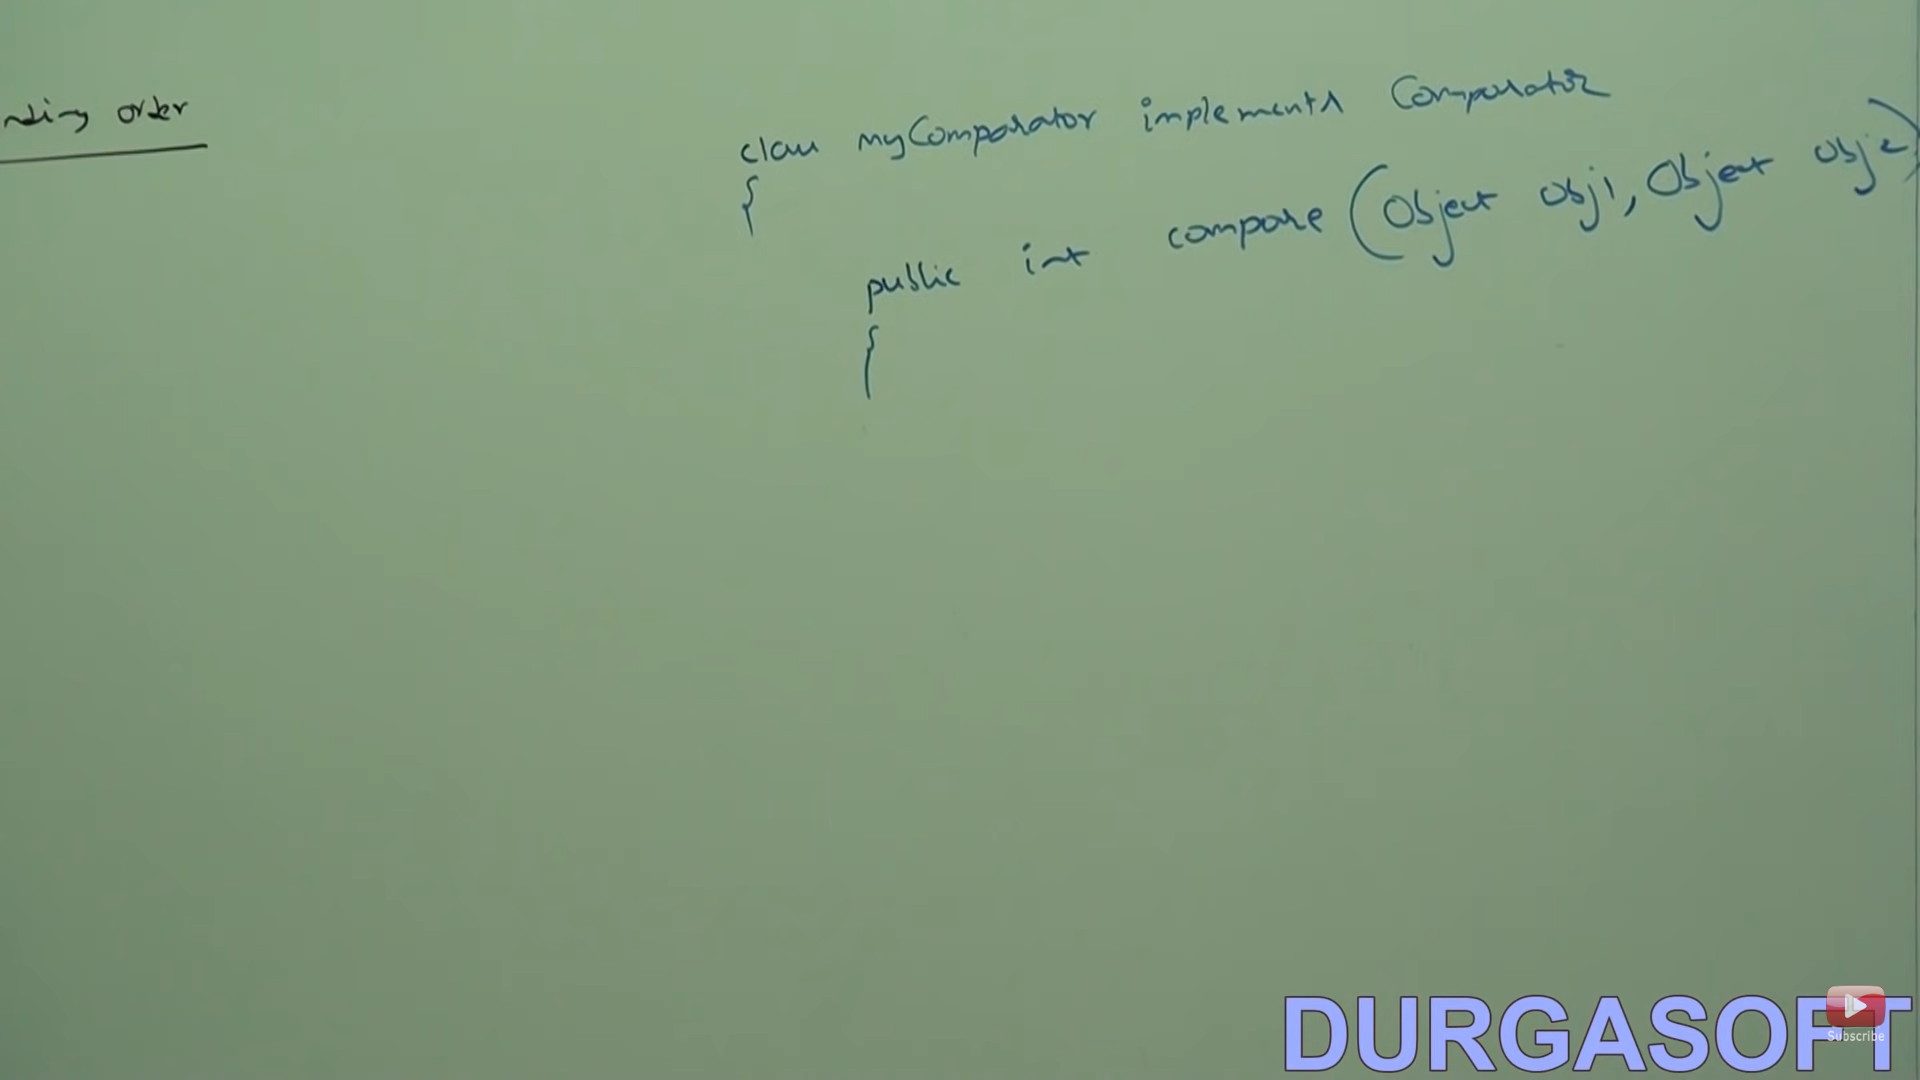 nding order
class myComparator implements Comparator
{
public int compare (Object obj1, Object obj2)
{
DURGASOFT
Subscribe